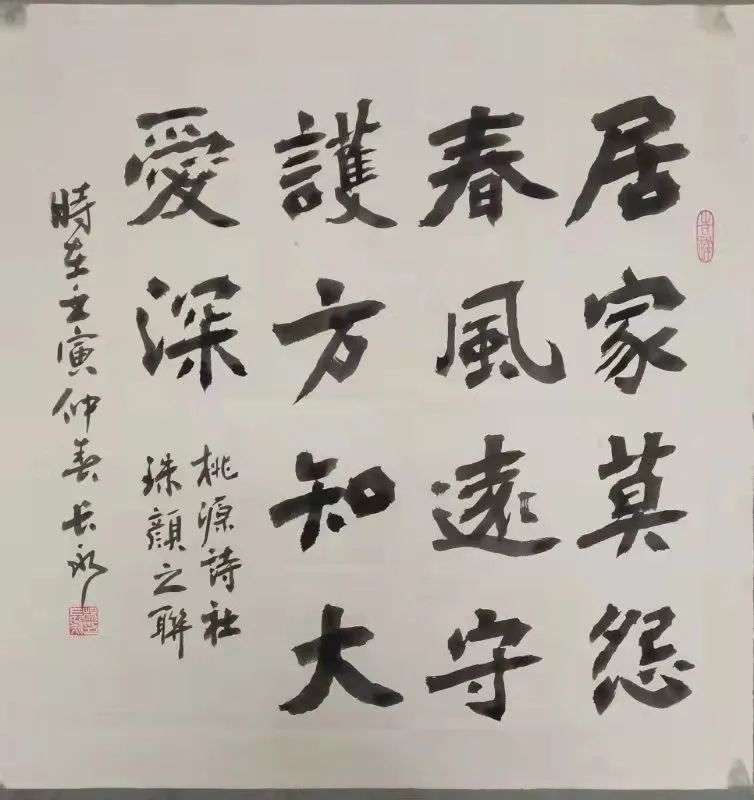 居家莫怨
春風遠守
護方知大
愛深
桃源詩社
珠顏之聯
時在壬寅仲春長永